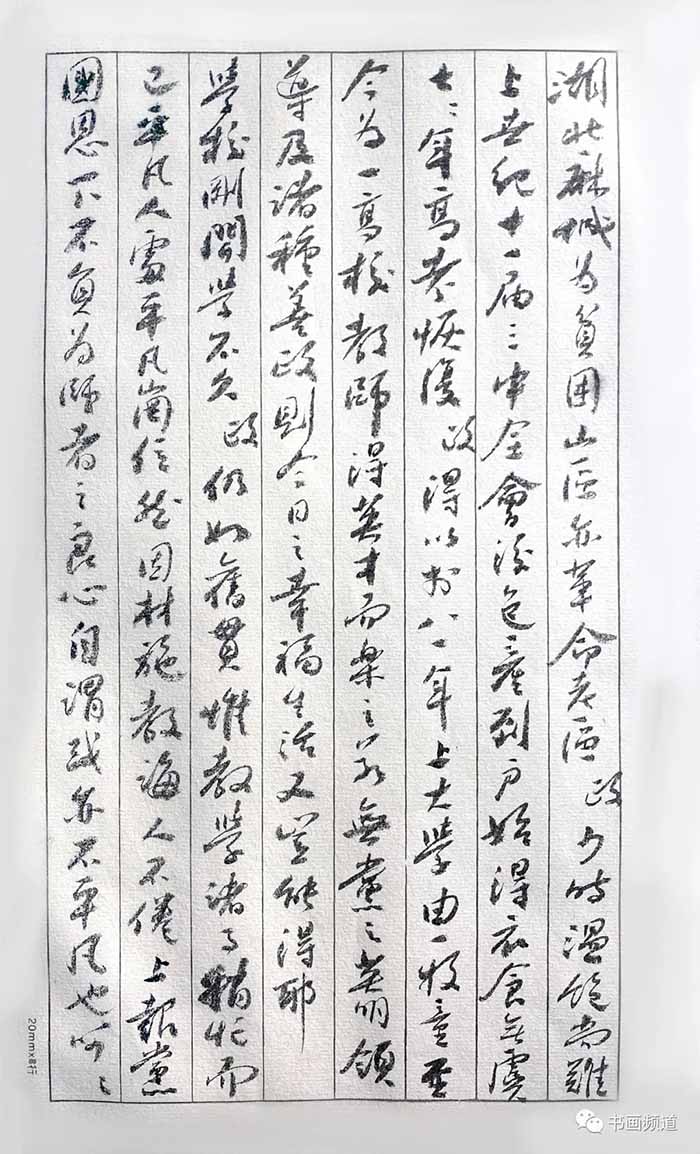 湖北麻城为貧困山區亦革命老區政少時溫飽尚難
上世纪十一届三中全會後包產到户始得衣食無虞
七七年高考恢復政得以於八一年上大學由一牧童至
今为一高校教師得英才而樂之若無黨之英明領
導及諸種善政則今日之幸福生活又豈能得耶
學校剛開學不久政仍如舊貫堆教學諸事稍忙而
已平凡人處平凡崗位然因材施教誨人不倦上報黨
國恩下不負为師者之良心自謂或亦不平凡也呵呵
20mmx8行
书画频道